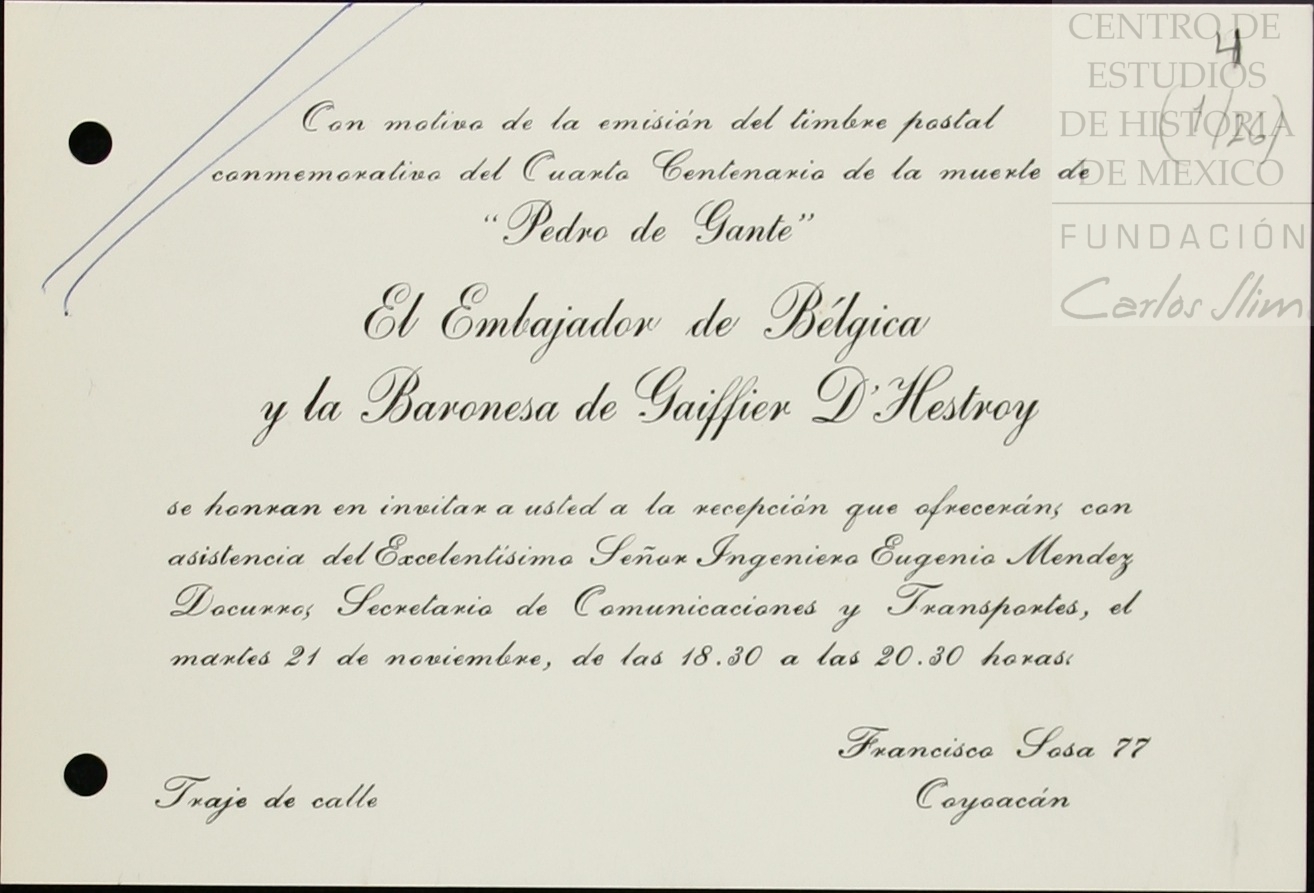 CENTRO DE
ESTUDIOS
DE HISTORIA
DE MEXICO
FUNDACIÓN
Carlos Slim
4
(1/26)
Con motivo de la emisión del timbre postal
conmemorativo del Cuarto Centenario de la muerte de
“Pedro de Gante”
El Embajador de Bélgica
y la Baronesa de Gaiffier D'Hestroy
se honran en invitar a usted a la recepción que ofrecerán, con
asistencia del Excelentísimo Señor Ingeniero Eugenio Mendez
Docurro, Secretario de Comunicaciones y Transportes, el
martes 21 de noviembre, de las 18.30 a las 20.30 horas.
Francisco Sosa 77
Coyoacán
Traje de calle